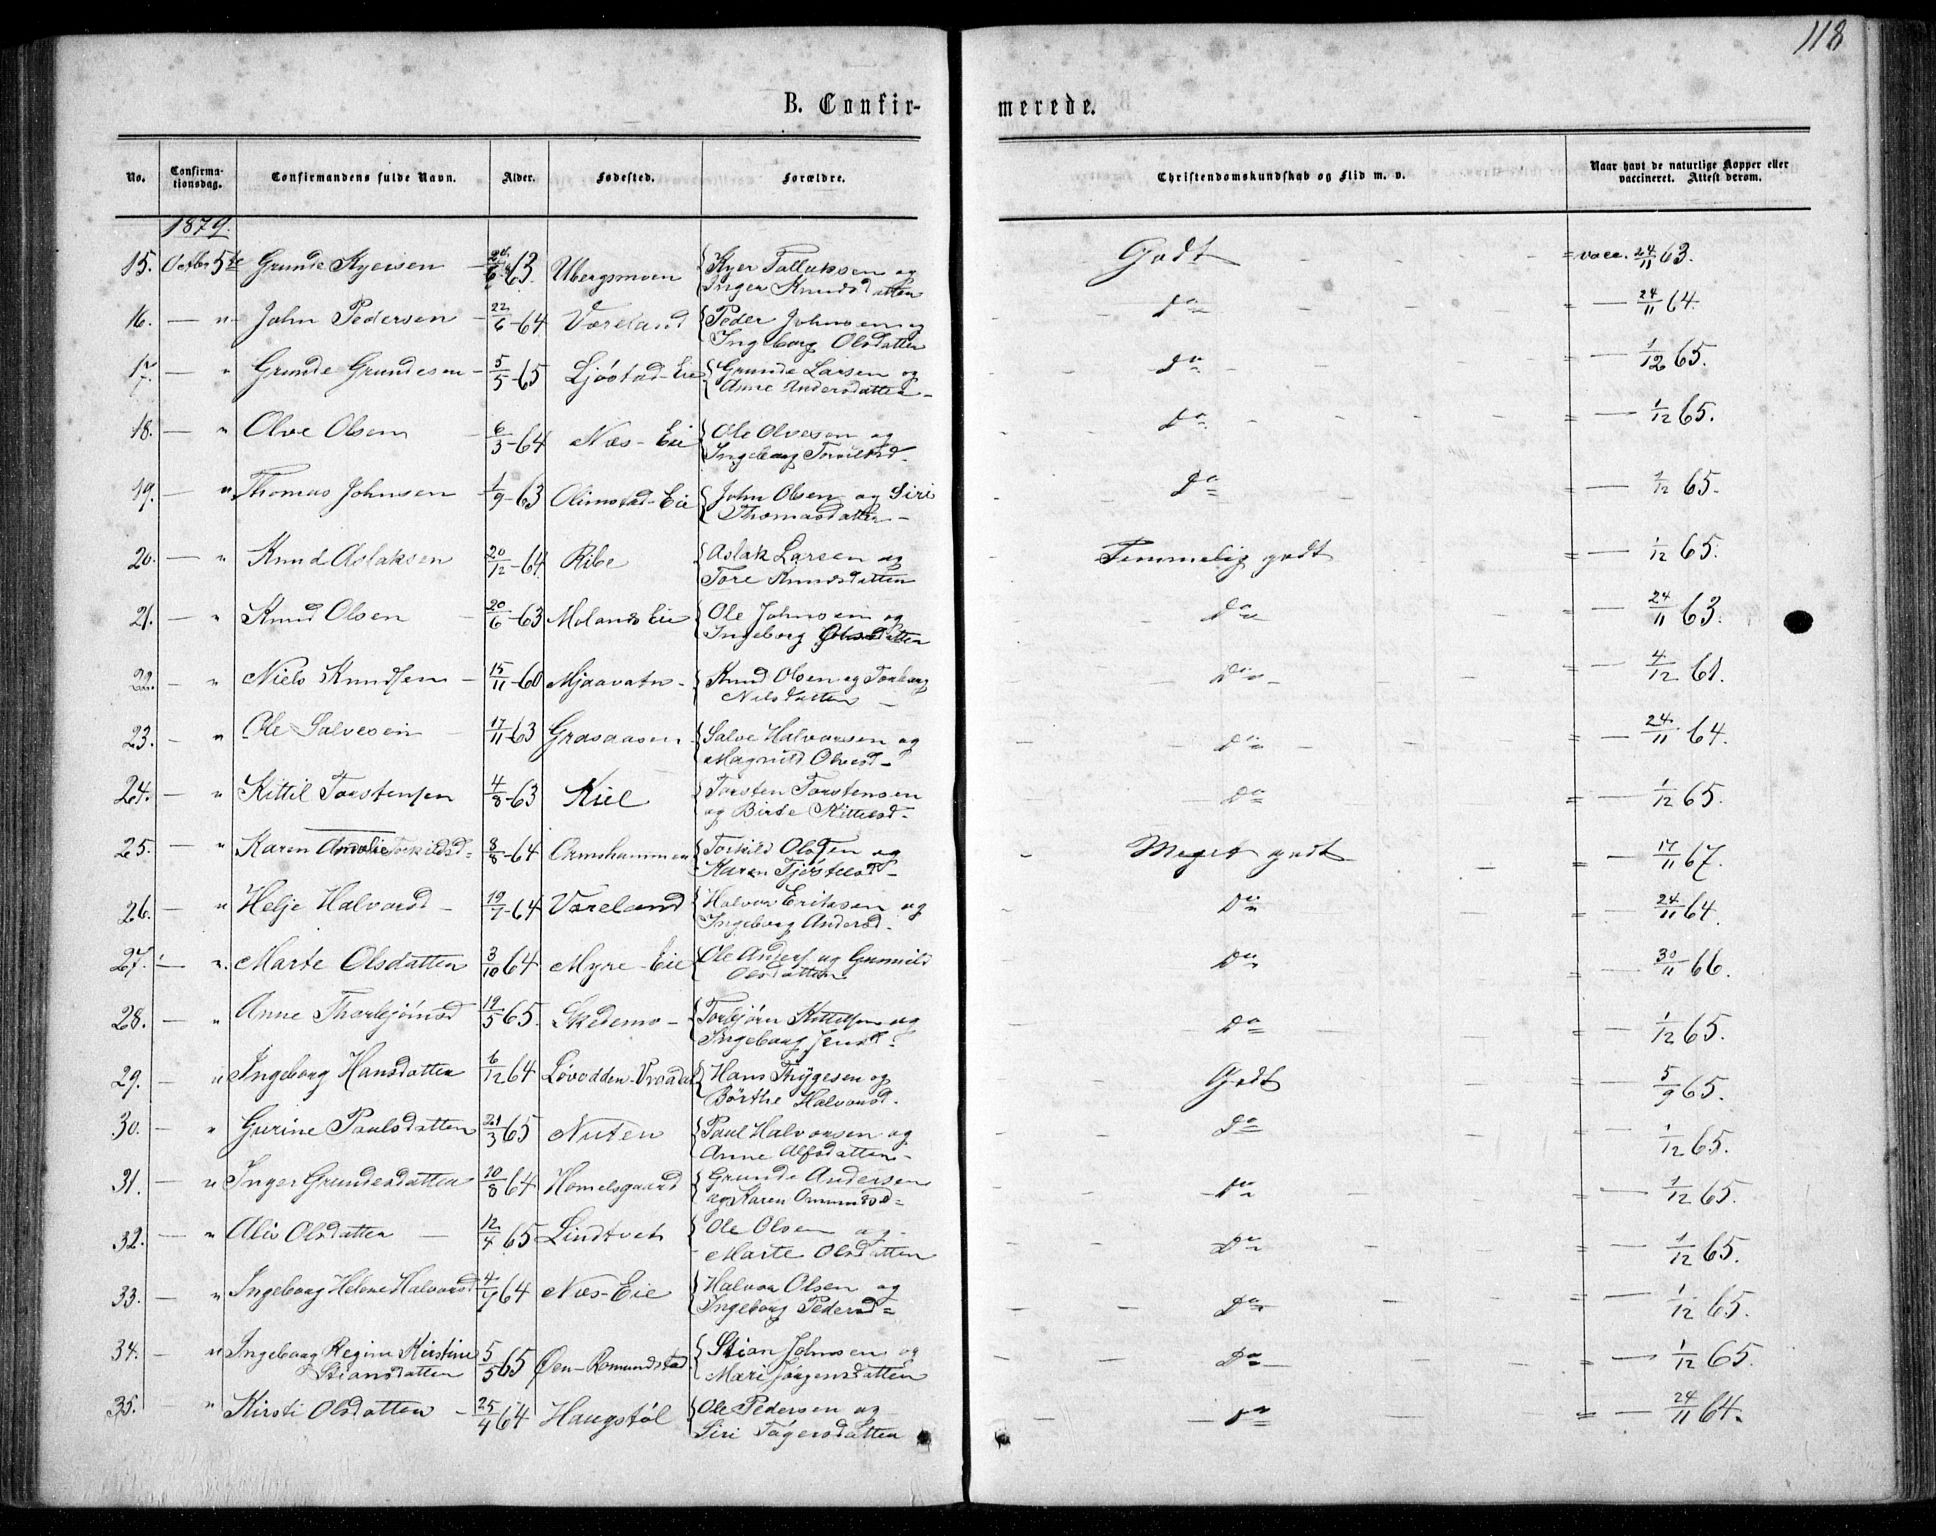 118
B. Confirmerede.
No. Confirmationsdag. Confirmandens fulde Navn. Alder. Fødested. Forældre. Christendomskundskab og Flid m. v. Naar havt de naturlige Kopper eller vaccineret. Attest derom.
1879.
15. Octbr 5te Grunde Kyersen - 6-63. Ubergsmoen { Kyer Tallaksen og Godt = vacc. 24/11 63.
Inger Knudsdatter
16. — " John Pedersen - 22/6-64 Væreland { Peder Johnsen og Do = — 24/11 64.
Ingeborg Olsdatter
17. — " Grunde Grundesen - 5/5-65 Ljøstad-Eie { Grunde Larsen og Do = — 1/12 65.
Anne Andersdatter -
18. — " Olve Olsen - 6/3-64 Næs-Eie { Ole Olvesen og Do = — 1/12 65.
Ingeborg
19. — " Thomas Johnsen - 1/9-63 Olimstad-Eie { John Olsen og Siri Do = — 1/12 65.
Thomasdatter -
20. — " Knud Aslaksen 20/12-64 Ribe { Aslak Larsen og Temmelig godt = — 1/12 65.
Tore Knudsdatter
21. — " Knud Olsen - 20/6-63 Molands Eie { Ole Johnsen og Do = — 24/11 63.
Ingeborg
22. — " Niels Knudsen - 15/11-60 Mjaavatn - { Knud Olsen og Torborg Do = — 4/12 61.
Nilsdatter -
23. — " Ole Salvesen - 17/11-63 Grasaasen { Salve Halvorsen og Do = — 24/11 64.
Magnild Olvesd-
24. — " Kittil Torstensen 4/8-63 Kiel { Torsten Torstensen Do = — 1/12 65.
og Birte Kittelsd-
25. — " Karen Amalie Torkildsd- 8/8-64 Ormshammen { Torkild Olsen og Meget godt = — 17/11 67.
Karen
26. — " Helje Halvorsd - 19/7-64 Væreland { Halvor Eriksen og Do = — 24/11 64.
Ingeborg Andersd.
27. — " Marte Olsdatter 3/10 64 Myre-Eie { Ole Anders. og Gunnild Do = — 30/11 66.
Olsdatter
28. — " Anne Thorbjörnsd 19/5 65. Skedemo - { Torbjörn Kittelsen og Do = — 1/12 65.
Ingeborg Jensd.
29. — " Ingeborg Hansdatter 6/12 64 Løvodden-Vraadal { Hans Thygesen og Godt = — 5/9 65.
Börthe Halvorsd.
30. — " Gurine Paulsdatter 21/3 65 Nuten { Paul Halvorsen og Do = — 1/12 65.
Anne Alfsdatter -
31. — " Inger Grundesdatter 20/8 64 Homelsgaard { Grunde Andersen Do = — 1/12 65.
og Karen Ommundsd-
32. — " Alis Olsdatter - 12/4 65 Lindtveit { Ole Olsen og Do = — 1/12 65.
Marte Olsdatter
33. — " Ingeborg Helene Halvorsd 4/9 64 Næs-Eie { Halvor Olsen og Do = — 1/12 65.
Ingeborg Pedersd-
34. — " Ingeborg Regine Kirstine 5/5 65 Øen-Romundstad { Stian Johnsen og Do = — 1/12 65.
Stiansdatter Mari Jörgensdatter
35. — " Kirsti Olsdatter - 25/4 64 Haugstöl { Ole Pedersen og Do = — 24/11 64.
Siri Tågersdatter